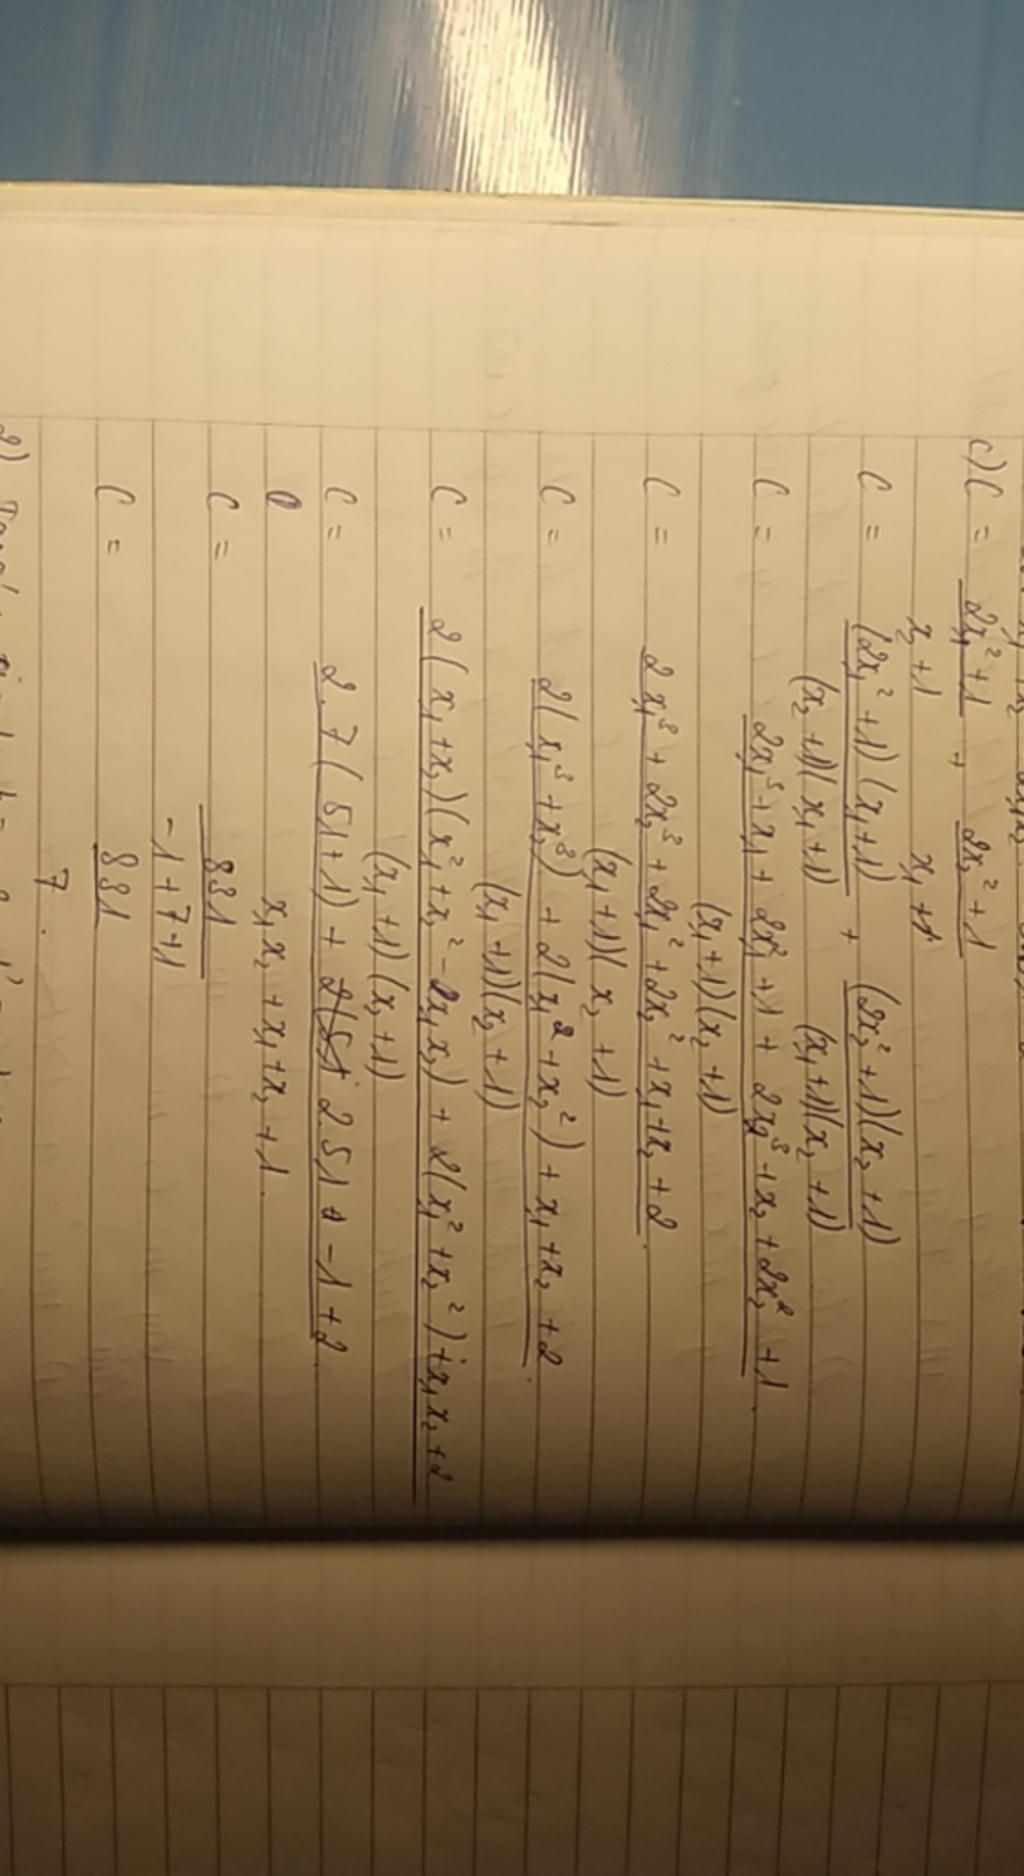 c) C = (2x₁² + 1)/(x₂ + 1) + (2x₂² + 1)/(x₁ + 1)
C = (2x₁² + 1)(x₁ + 1)/(x₂ + 1)(x₁ + 1) + (2x₂² + 1)(x₂ + 1)/(x₁ + 1)(x₂ + 1)
C = 2x₁³ + x₁ + 2x₁² + 1 + 2x₂³ + x₂ + 2x₂² + 1 / (x₁ + 1)(x₂ + 1)
C = 2x₁³ + 2x₂³ + 2x₁² + 2x₂² + x₁ + x₂ + 2 / (x₁ + 1)(x₂ + 1)
C = 2(x₁³ + x₂³) + 2(x₁² + x₂²) + x₁ + x₂ + 2 / (x₁ + 1)(x₂ + 1)
C = 2(x₁ + x₂)(x₁² + x₂² - x₁x₂) + 2(x₁² + x₂²) + x₁x₂ + 2 / (x₁ + 1)(x₂ + 1)
C = 2.7(51 + 1) + 2.51 - 1 + 2 / x₁x₂ + x₁ + x₂ + 1
C = 831 / -1 + 7 + 1
C = 831 / 7.
2)